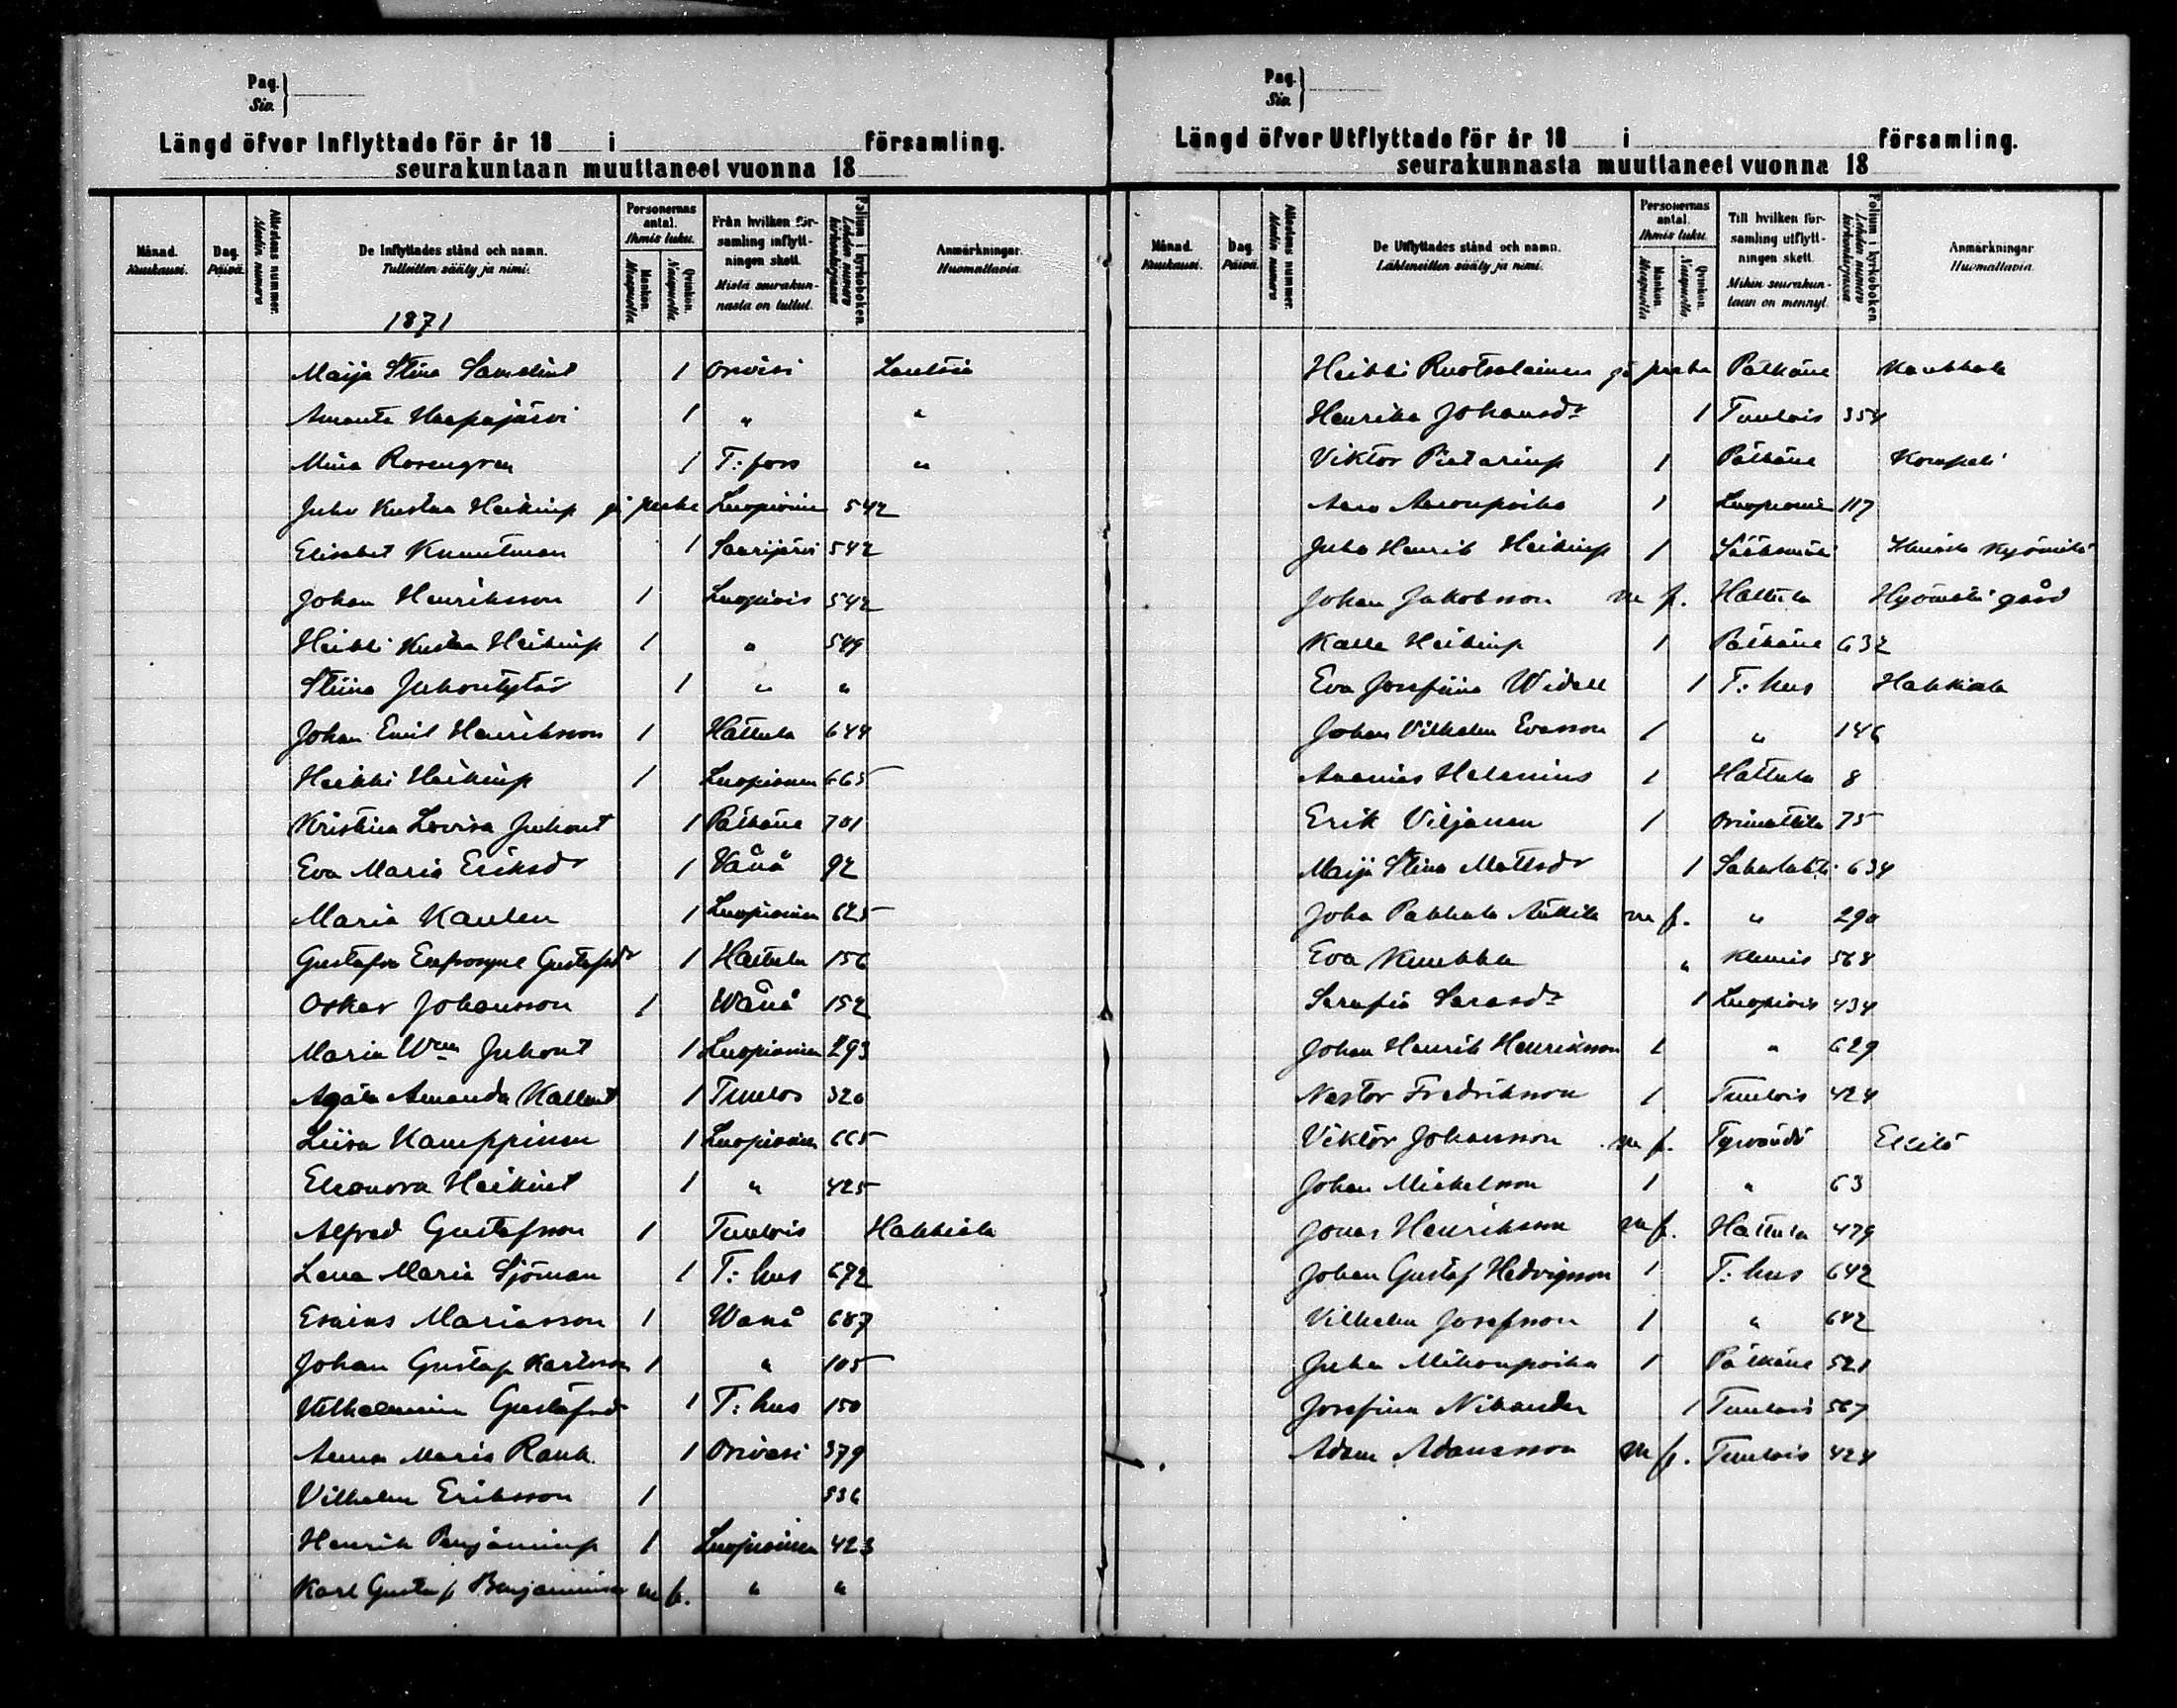 Pag.
Siv.
Längd öfver Inflyttade för år 18 i församling.
seurakuntaan muuttaneet vuonna 18
Månad. Kuukausi.
Dag. Päivä.
Attestens nummer. Attestin numero
De Inflyttades stånd och namn. Tulleitten sääty ja nimi.
Personernas antal. Ihmis luku.
Mankön. Miespuolta
Qvinkön. Naispuolta.
Från hvilken församling inflyttningen skett. Mistä seurakunnasta on tullut.
Folium i kyrkoboken. Lehden numero kirkonkirjassa
Anmärkningar. Huomattavia.
1871
Maija Stina 1 Orivesi Lautsia
Amanta Haapajärvi 1 " "
Mina Rosengren 1 T:fors "
Juho Kustaa Heikinp ja perhe Luopioinen 542
Elisabet Knuutman 1 Saarijärvi 542
Johan Henriksson 1 Luopiois 542
Heikki Kustaa Heikinp 1 " 549
Stiina Juhontytär 1 " "
Johan Emil Henriksson 1 Hattula 644
Heikki Heikinp 1 Luopioinen 665
Kristina Lovisa Juhont 1 Pälkäne 701
Eva Maria Eriksdr 1 Vånå 92
Maria Kanten 1 Luopioinen 625
Gustafva Eufrosyne Gustafsdr 1 Hattula 156
Oskar Johansson 1 Wånå 152
Maria Wna Juhont 1 Luopioinen 293
Agata Amanda Kallent 1 Tuulos 320
Liisa Kamppinen 1 Luopioinen 665
Eleonora Heikint 1 " 425
Alfred Gustafsson 1 Tuulois Hakkiala
Lena Maria Sjöman 1 T:hus 672
Esaias Mariasson 1 Wanå 687
Johan Gustaf Karlsson 1 " 105
Vilhelmina Gustafsd 1 T:hus 150
Anna Maria Rauh. 1 Orivesi 379
Vilhelm Eriksson 1 536
Henrik Benjaminp 1 Luopioinen 423
Karl Gustaf Benjaminson m f. " "
Pag.
Siv.
Längd öfver Utflyttade för år 18 i församling.
seurakunnasta muuttaneet vuonna 18
Månad. Kuukausi.
Dag. Päivä.
Attestens nummer. Attestin numero
De Utflyttades stånd och namn. Lähteneitten sääty ja nimi.
Personernas antal. Ihmis luku.
Mankön. Miespuolta
Qvinkön. Naispuolta.
Till hvilken församling utflyttningen skett. Mihin seurakuntaan on mennyt.
Folium i kyrkoboken. Lehden numero kirkonkirjassa
Anmärkningar Huomattavia.
Heikki Ruotsalainen ja perhe Pälkäne Kaukkala
Henrika Johansdr 1 Tuulois 354
Viktor Pietarinp 1 Pälkäne
Aaro Aaronpoika 1 Luopioinen 117
Juho Henrik Heikinp 1 Sääksmäki
Johan Jakobsson m f. Hattula gård
Kalle Heikinp 1 Pälkäne 632
Eva Josefiina Widell 1 T:hus Hakkiala
Johan Vilhelm Evasson 1 " 146
Ananias Helenius 1 Hattula 8
Erik Viljanen 1 Orimattila 75
Maija Stina Mattsdr 1 Sahalahti 634
Juha Pakkala Anttila m f. " 290
Eva " 568
Serafia Sarasdr 1 Luopiois 434
Johan Henrik Henriksson 1 " 629
Nestor Fredriksson 1 Tuulois 424
Viktor Johansson m f. Tyrvändö
Johan Mickelsson 1 " 63
Jonas Henriksson m f. Hattula 479
Johan Gustaf Hedvigsson 1 T:hus 642
Vilhelm Josefsson 1 " 642
Juha Mikonpoika 1 Pälkäne 521
Josefina Nikander 1 Tuulois 567
Adam Adamsson m f. Tuulois 424